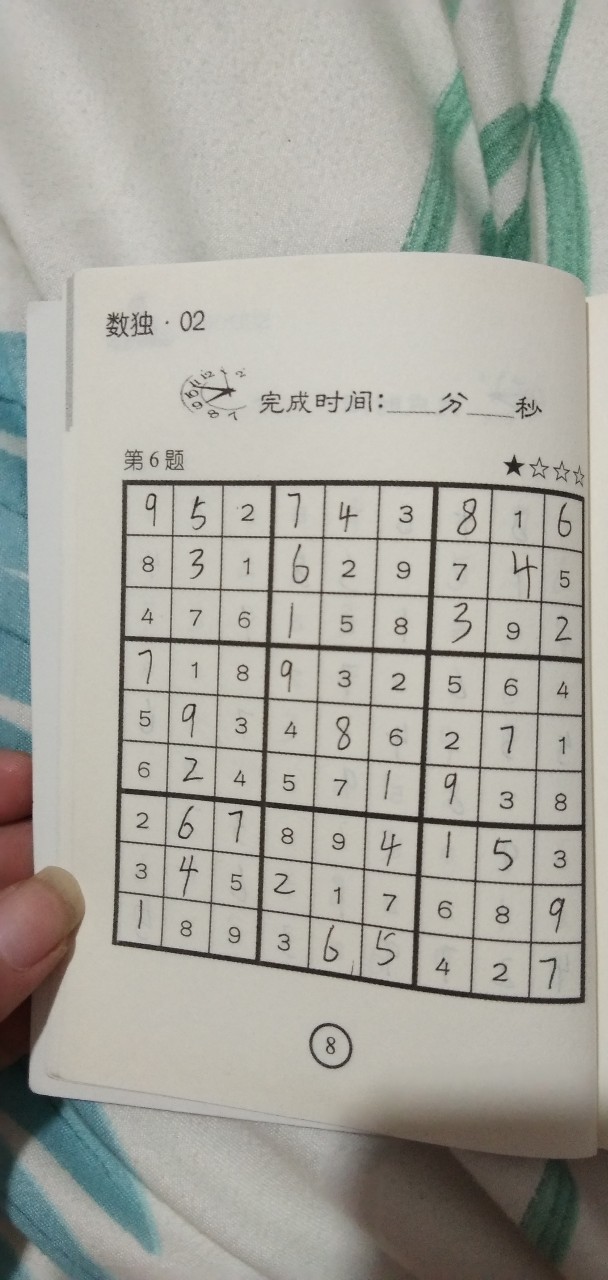 数独·02
完成时间:___分___秒
第6题 ★☆☆☆
9 5 2 7 4 3 8 1 6
8 3 1 6 2 9 7 4 5
4 7 6 1 5 8 3 9 2
7 1 8 9 3 2 5 6 4
5 9 3 4 8 6 2 7 1
6 2 4 5 7 1 9 3 8
2 6 7 8 9 4 1 5 3
3 4 5 2 1 7 6 8 9
1 8 9 3 6 5 4 2 7
8